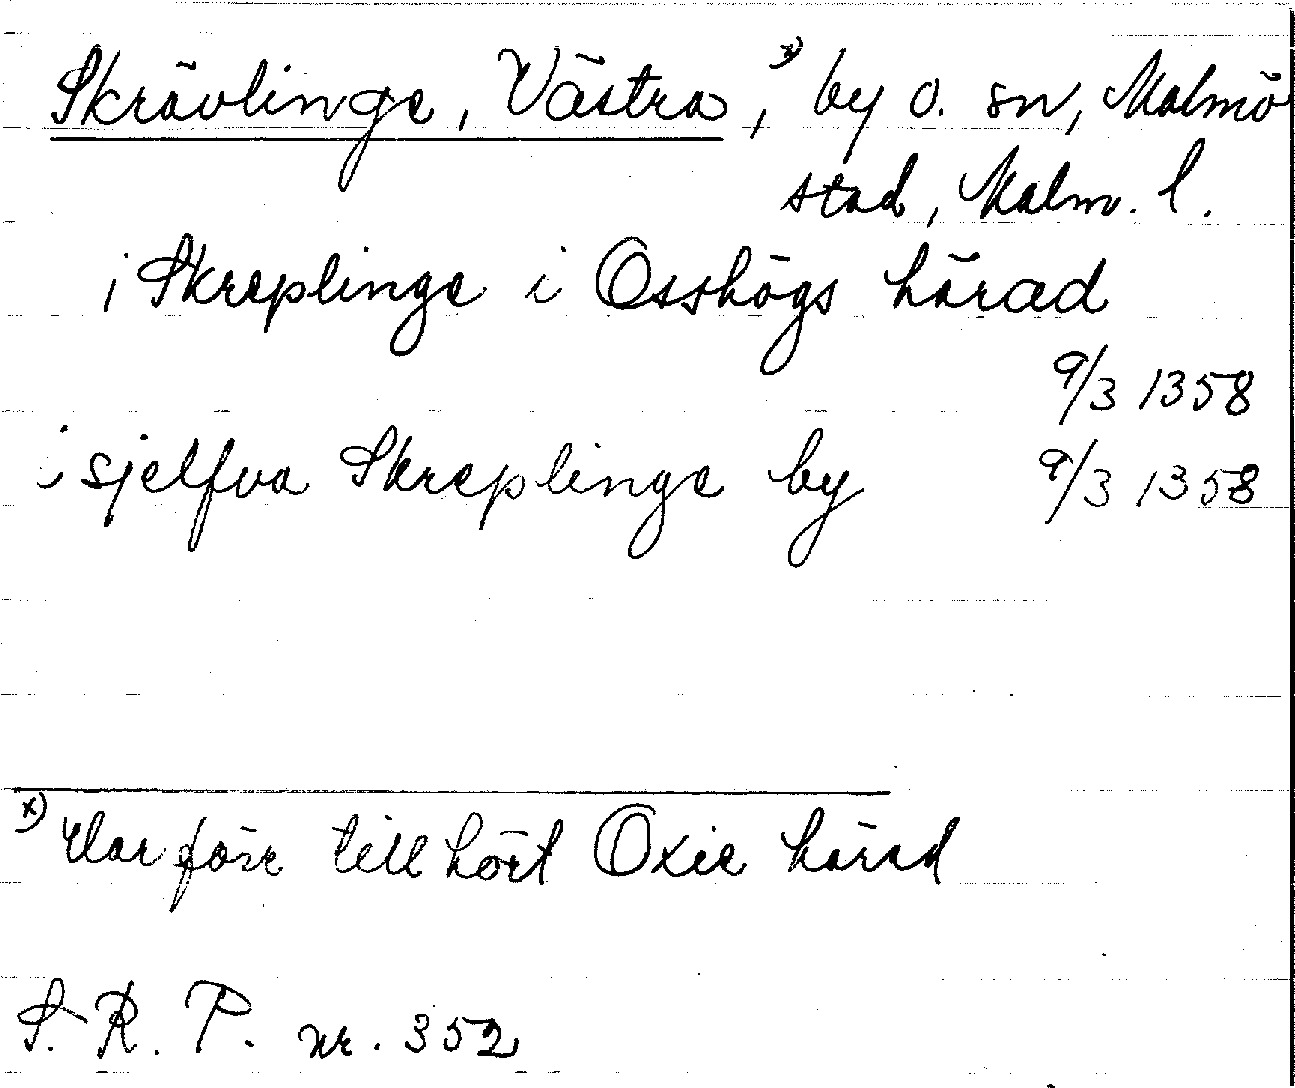 Skrävlinge, Västra,ˣ⁾ by o. sn, Malmö
stad, Malm. l.
i Skreplinge i Osshögs härad
9/3 1358
i sjelfva Skreplinge by 9/3 1358
ˣ⁾ Har förr tillhört Oxie härad
S. R. P. nr. 352